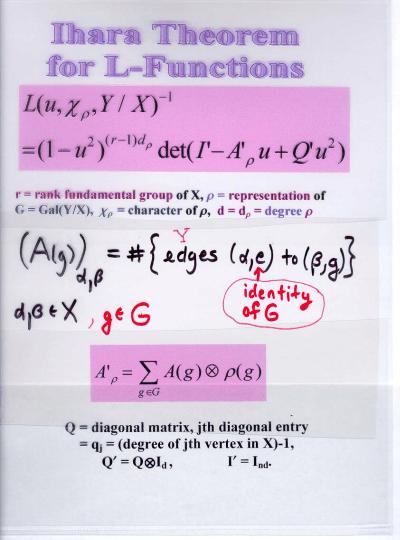 Ihara Theorem
for L-Functions
L(u, χ_ρ, Y / X)^{-1}
=(1−u²)^{(r−1)d_ρ} det(I'−A'_ρ u+Q'u²)
r = rank fundamental group of X, ρ = representation of
G = Gal(Y/X), χ_ρ = character of ρ, d = d_ρ = degree ρ
Y
(A(g))_{α,β} = #{edges (α,e) to (β,g)}
identity
of G
α,β ∈ X, g∈ G
A'_ρ = ∑_{g∈G} A(g)⊗ρ(g)
Q = diagonal matrix, jth diagonal entry
= q_j = (degree of jth vertex in X)-1,
Q' = Q⊗I_d, I' = I_{nd}.